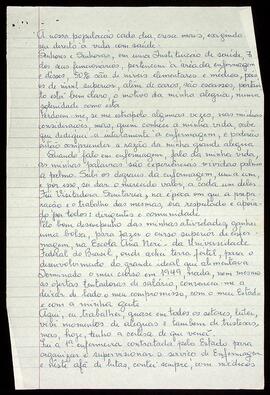 A nossa população cada dia, cresce mais, exigindo
seu direito à vida com saúde.
Senhores e Senhoras, em uma Instituição de saúde, 7
dos seus funcionários, pertencem à área da enfermagem
e disso, 50% são de níveis elementares e médios, pois
os de nível superior, além de caros, são escassos, portan
to está bem claro, o motivo da minha alegria, numa
solenidade como esta
Perdoem-me, se me extrapolo algumas vezes, nas minhas
considerações, mas, quem conhece a minha vida, sabe
que dediquei-a inteiramente à enfermagem, e poderão
então compreender a razão da minha grande alegria.
Quando falo em enfermagem, falo da minha vida,
as minhas palavras são experiências vividas palmo
a palmo. Subi os degraus da enfermagem, um a um
e por isso, sei dar o merecido valor, a cada um deles.
Fui Visitadora Sanitária, na época em que a prepa
ração e o trabalho das mesmas, era respeitado e apoia
do por todos: dirigentes e comunidade
Pelo bom desempenho das minhas atividades, ganhei
uma bolsa, para fazer o curso superior de enfer
magem, na Escola Ana Neri - da Universidade
Federal do Brasil, onde achei terra fértil, para o
desenvolvimento do grande ideal que alimentava
Terminado o meu curso em 1949, nada, nem mesmo
as ofertas tentadoras de salário, conseguiu-me a
deixar de lado o meu compromisso, com o meu Estado
e com a minha gente
Aqui, eu trabalhei, quase em todos os setores, lutei,
vivi momentos de alegrias e também de tristezas,
mas, hoje, tenho a certeza de que venci.
Fui a 1ª enfermeira contratada pelo Estado para
organizar e supervisionar o serviço de Enfermagem
e neste afã de lutas, contei sempre, com médicos